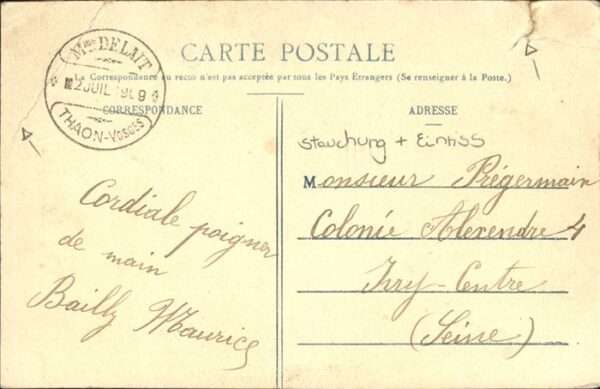 Mme DELAIT
2 JUIL 1909
THAON-VOSGES
CARTE POSTALE
La Correspondance au recto n'est pas acceptée par tous les Pays Étrangers (Se renseigner à la Poste.)
CORRESPONDANCE
ADRESSE
Stauchung + Einriss
Cordiale poignee
de main
Bailly Maurice
Monsieur Prégermain
Colonie Alexendre 4
Ivry-Centre
(Seine)